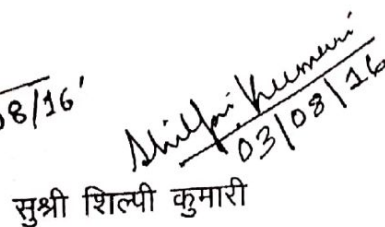 08/16'
Shilpi Kumari
03/08/16
सुश्री शिल्पी कुमारी